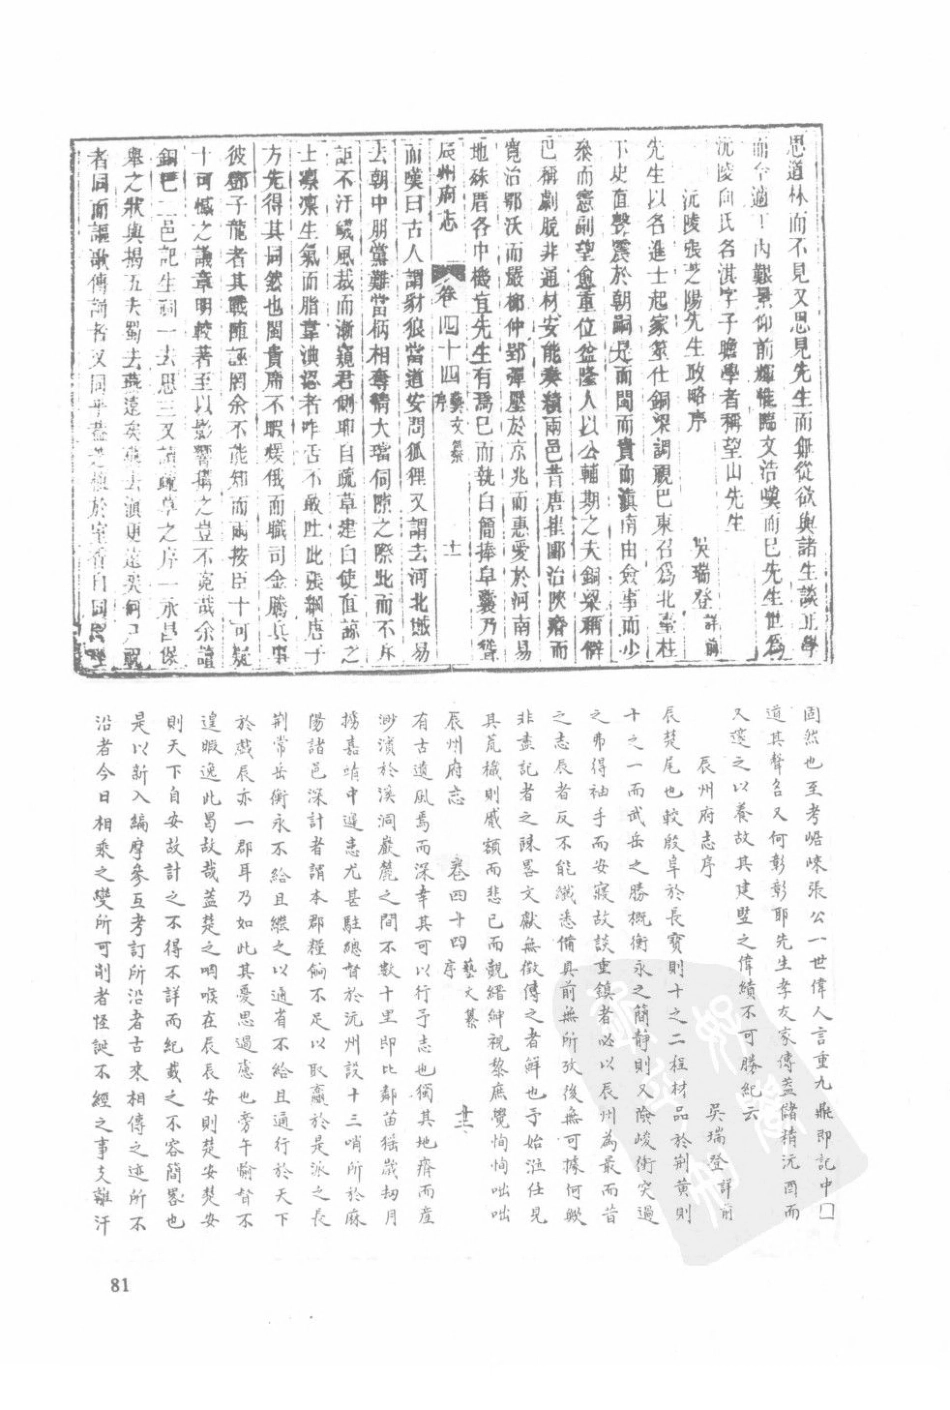 思道林而不見又思見先生而無從欲與諸生談正學
而今適丁內艱景仰前輝惟臨文浩嘆而已先生世為
沅陵向氏名淇字子瞻學者稱望山先生
沅陵張芝陽先生政略序
吳瑞登詳前
先生以名進士起家筮仕銅梁調視巴東召為北臺柱
下史直聲震於朝嗣是而閩而貴而滇南由僉事而少
參而憲副望愈重位益隆人以公輔期之夫銅梁稱僻
巴稱劇脫非通材安能奏績兩邑昔唐崔郾治陝
寬治鄂沃而嚴 仲郢彈壓於京兆而惠愛於河南易
地殊厝各中機宜先生有焉已而執白簡捧皁囊乃聳
辰州府志 卷四十四 藝文纂 序 十一
而嘆曰古人謂豺狼當道安問狐狸又謂去河北 易
去朝中朋黨難當柄相奪情大璫伺隙之際北而不斥
詎不汙 風裁而漸窺君側耶自疏草建白使直諒之
士凜凜生氣而脂韋淟涊者咋舌不敢吐此張 唐子
方先得其同然也閩貴席不暇煖俄而職司金騰其事
彼鄧子龍者其戰陣誣罔余不能知而兩按臣十可疑
十可憾之議章明較著至以影響擠之豈不冤哉余讀
銅巴二邑記生祠一去思三又讀疏草之序一永昌保
舉之狀與揭五夫蜀去燕遠矣 去滇更遠矣何尸祝
者同而謳歌傳誦者又同乎蓋芝植於室香自同
固然也至考峿崍張公一世偉人言重九鼎即記中□
道其聲名又何彰彰耶先生孝友家傳蓋儲精沅酉而
又邃之以養故其建豎之偉績不可勝紀云
辰州府志序
吳瑞登詳前
辰楚尾也較殷阜於長寶則十之二程材品於荆黃則
十之一而武岳之勝概衡永之簡靜則又險峻衝突過
之弗得袖手而安寢故談重鎮者必以辰州為最而昔
之志辰者反不能纖悉備具前無所攷後無可據何歟
非盡記者之疎畧文獻無徵傳之者鮮也予始涖仕見
其荒穢則慼額而悲已而觀縉紳視黎庶覺恂恂咄咄
辰州府志 卷四十四 藝文纂 序 十二
有古遺風焉而深幸其可以行予志也獨其地瘠而產
渺濱於溪洞巖麓之間不數十里即比鄰苗猺歲刧月
擄嘉靖中遲患尤甚駐總督於沅州設十三哨所於麻
陽諸邑深計者謂本郡糧餉不足以取贏於是派之長
荆常岳衡永不給且繼之以通省不給且通行於天下
於戲辰亦一郡耳乃如此其憂思過慮也旁午愉督不
遑暇逸此曷故哉蓋楚之咽喉在辰辰安則楚安楚安
則天下自安故計之不得不詳而紀載之不容簡畧也
是以新入編摩參互考訂所沿者古來相傳之迹所不
沿者今日相乘之變所可削者怪誕不經之事支離汗
81